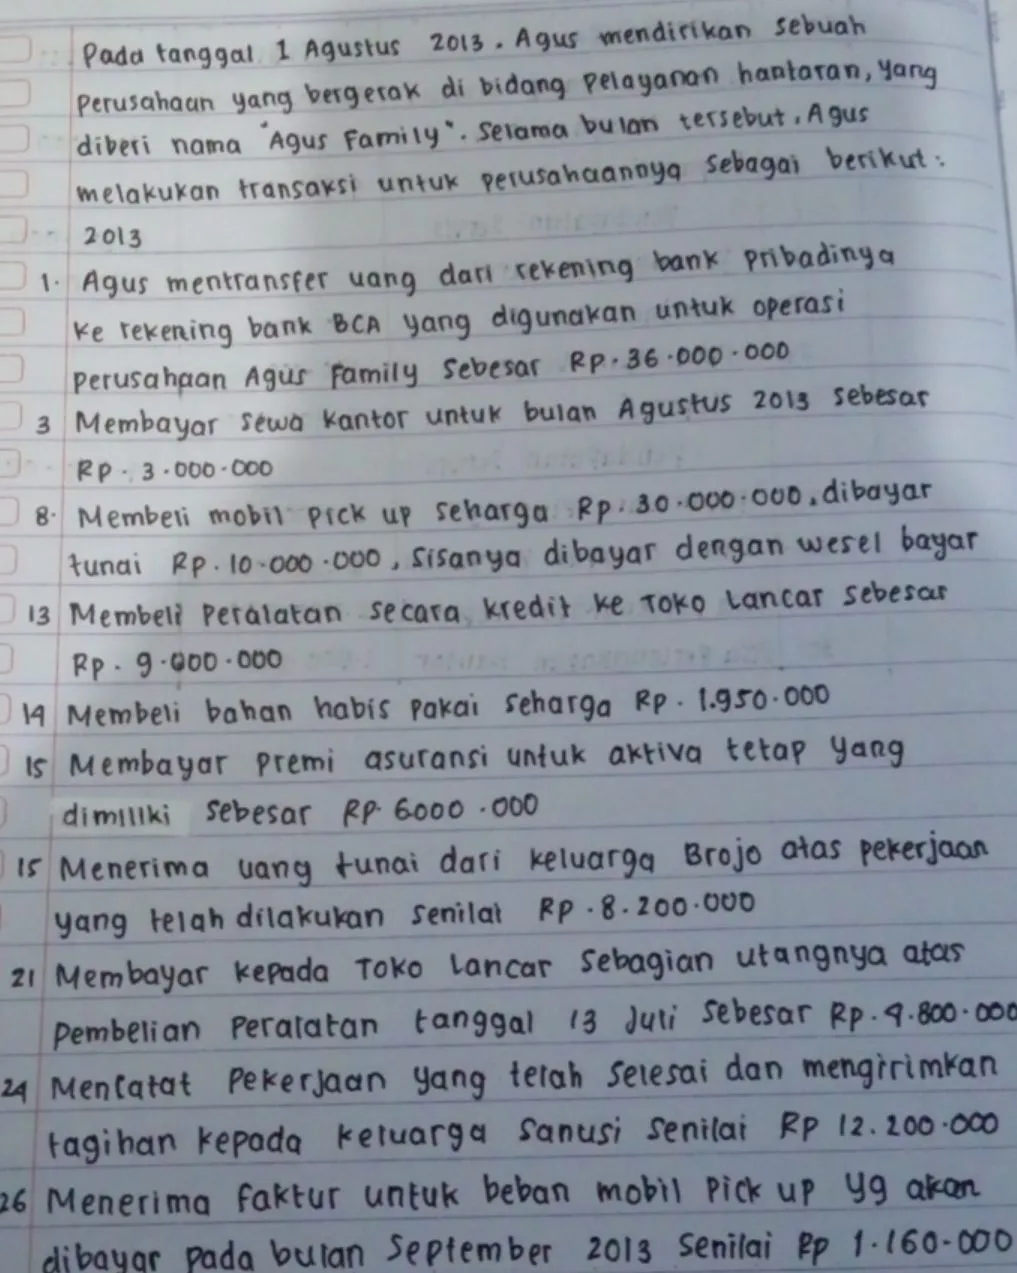 Pada tanggal 1 Agustus 2013. Agus mendirikan sebuah
perusahaan yang bergerak di bidang pelayanan hantaran, yang
diberi nama "Agus Family". Selama bulan tersebut, Agus
melakukan transaksi untuk perusahaannya sebagai berikut:
2013
1. Agus mentransfer uang dari rekening bank pribadinya
ke rekening bank BCA yang digunakan untuk operasi
perusahaan Agus Family sebesar Rp. 36.000.000
3 Membayar sewa kantor untuk bulan Agustus 2013 sebesar
Rp. 3.000.000
8. Membeli mobil pick up seharga Rp. 30.000.000, dibayar
tunai Rp. 10.000.000, sisanya dibayar dengan wesel bayar
13 Membeli Peralatan secara kredit ke Toko Lancar sebesar
Rp. 9.000.000
14 Membeli bahan habis pakai seharga Rp. 1.950.000
15 Membayar premi asuransi untuk aktiva tetap yang
dimiliki sebesar Rp. 6000.000
15 Menerima uang tunai dari keluarga Brojo atas pekerjaan
yang telah dilakukan senilai Rp. 8.200.000
21 Membayar kepada Toko Lancar sebagian utangnya atas
pembelian peralatan tanggal 13 Juli sebesar Rp. 4.800.000
24 Mencatat pekerjaan yang telah selesai dan mengirimkan
tagihan kepada keluarga Sanusi senilai Rp 12.200.000
26 Menerima faktur untuk beban mobil pick up yg akan
dibayar pada bulan September 2013 senilai Rp 1.160.000